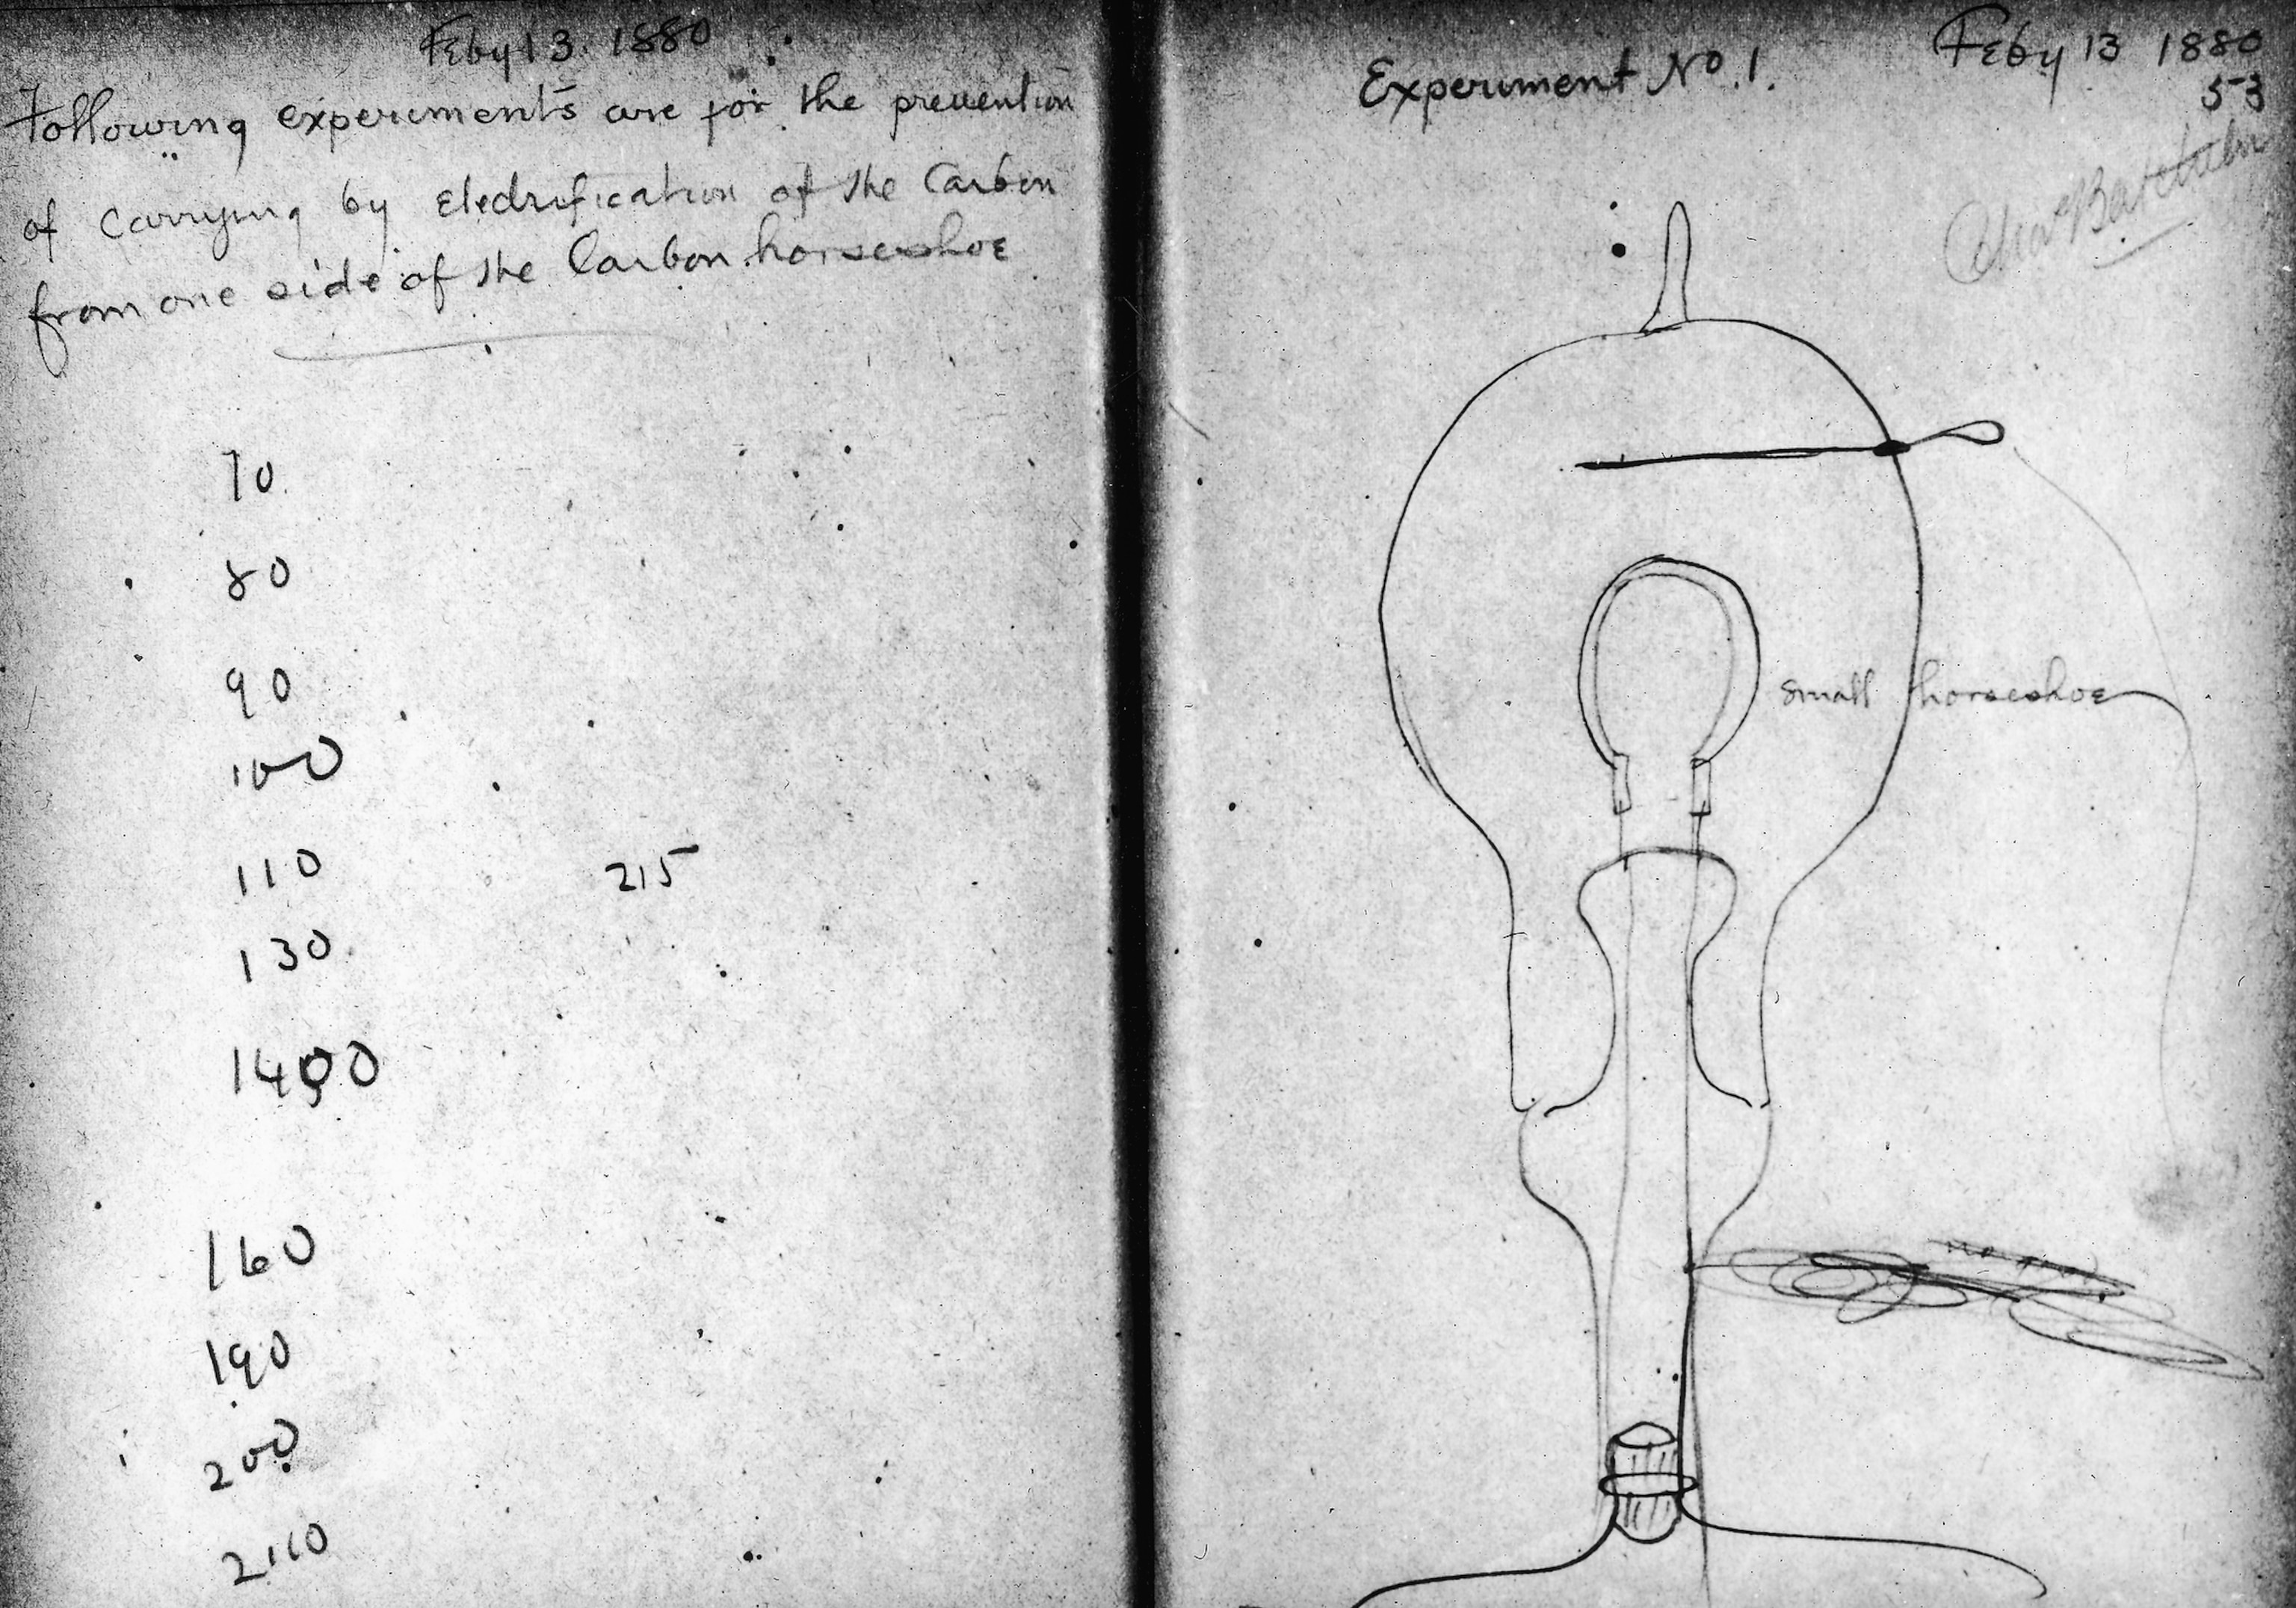 Feby 13. 1880
Following experiments are for the prevention
of Carrying by Eledrification of the Carbon
from one side of the Carbon horseshoe
70
80
90
100
110
215
130
160
190
200
Experiment No. 1.
Feby 13 1880
53
Batchelor
small horseshoe